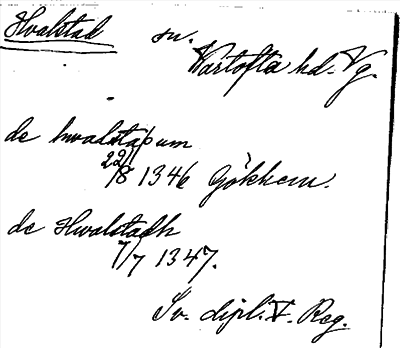 Hvalstad sn.
Vartofta hd. Vg.
de hwalstapum
22/8 1346 Gökhem.
de Hwalstadh
7/7 1347.
Sv. dipl. V. Reg.